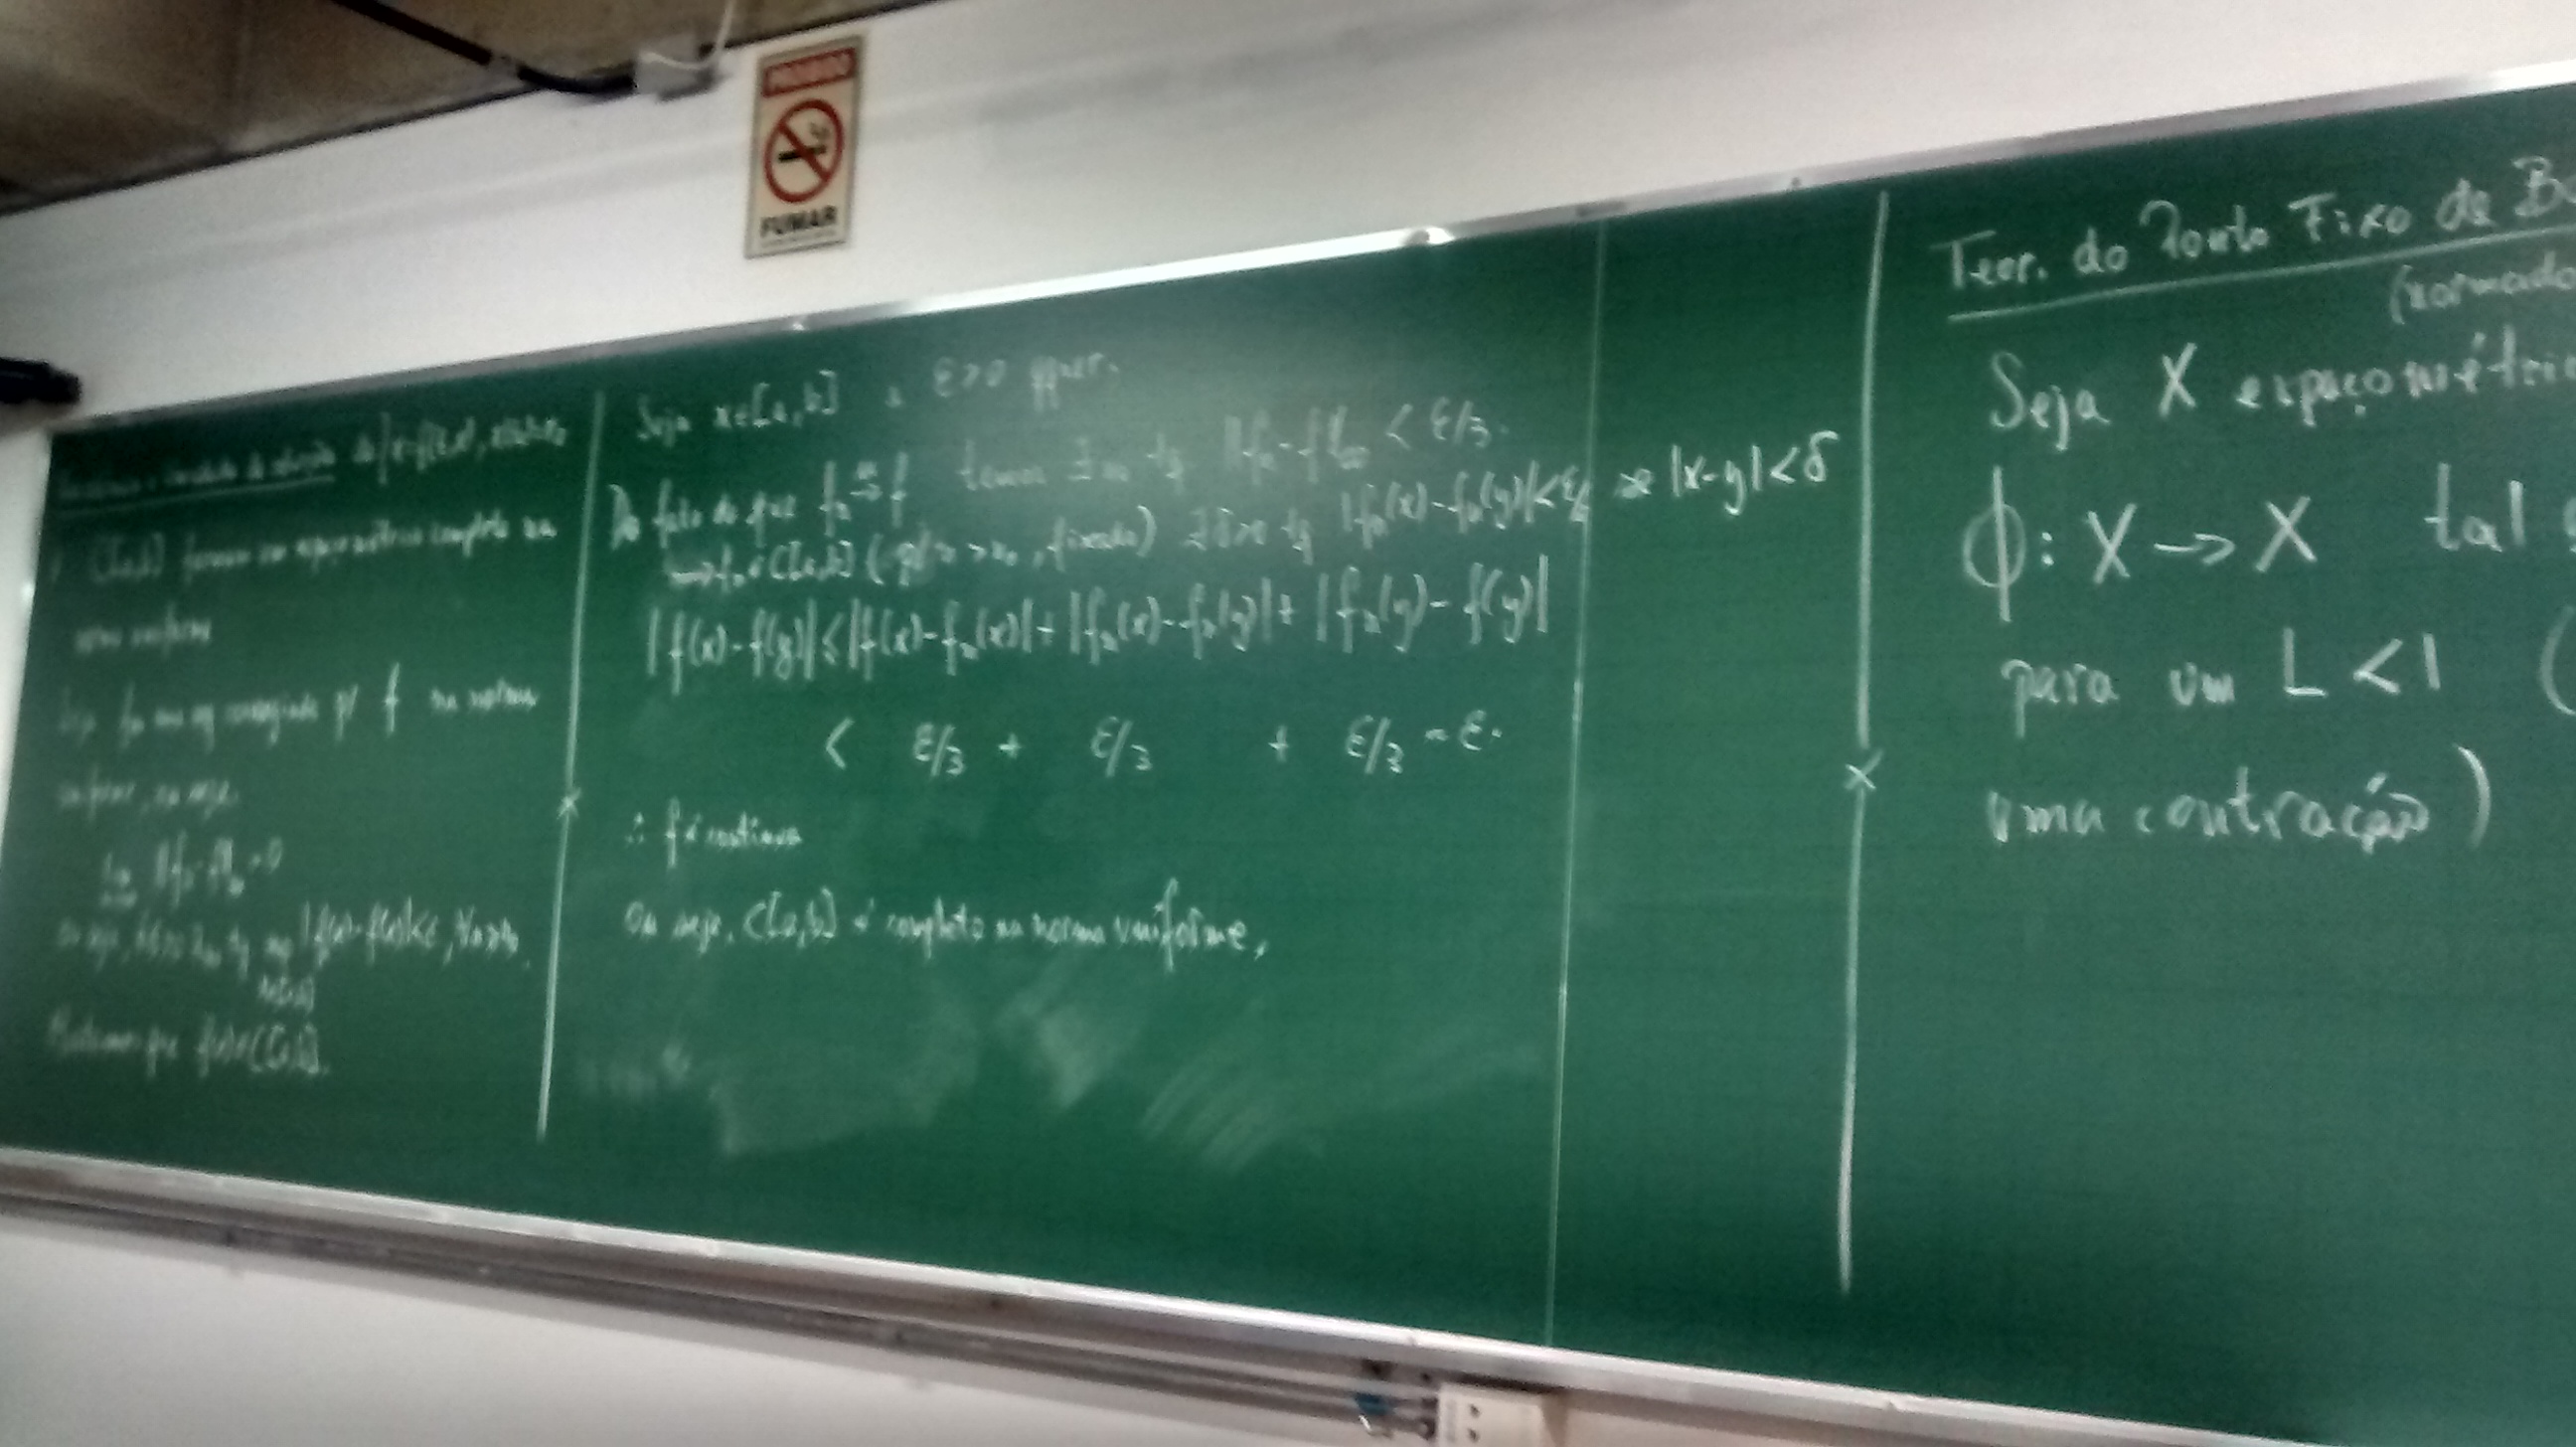 PROIBIDO
FUMAR
C[a,b] espaço métrico completo na
norma uniforme
Seja fn uma convergindo p/ f na norma
uniforme, ou seja,
lim ‖fn-f‖∞ = 0
ou seja, |fn(x)-f(x)|<ε, ∀n>n₀
x∈[a,b]
que f(x)∈C([a,b]).
Seja x∈[a,b] e ε>0 qquer.
Do fato de que fn → f temos ∃ n₀ tq ‖fn-f‖∞ < ε/3.
fn∈C[a,b] (p/ n>n₀, fixado) ∃δ>0 tq |fn(x)-fn(y)|<ε/3 se |x-y|<δ
|f(x)-f(y)| ≤ |f(x)-fn(x)| + |fn(x)-fn(y)| + |fn(y)-f(y)|
< ε/3 + ε/3 + ε/3 = ε.
∴ f é contínua
Ou seja, C[a,b] é completo na norma uniforme,
Teor. do Ponto Fixo de
(normado
Seja X espaço métric
ϕ: X → X tal
para um L < 1 (
uma contração)